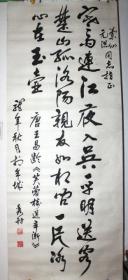 同志指正
寒雨連江夜入吴平明送客
楚山孤洛陽親友如相问一片冰
心在玉壺 唐王昌龄《芙蓉楼送辛渐》
龍年秋月於羊城